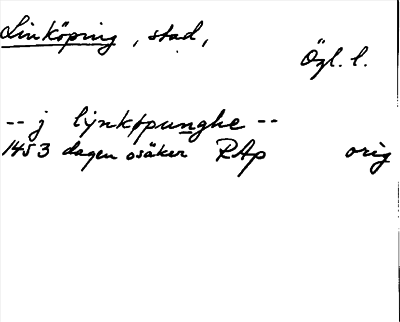 Linköping, stad,
Ögl. l.
-- j lynköpunghe --
1453 dagen osäker RAp orig